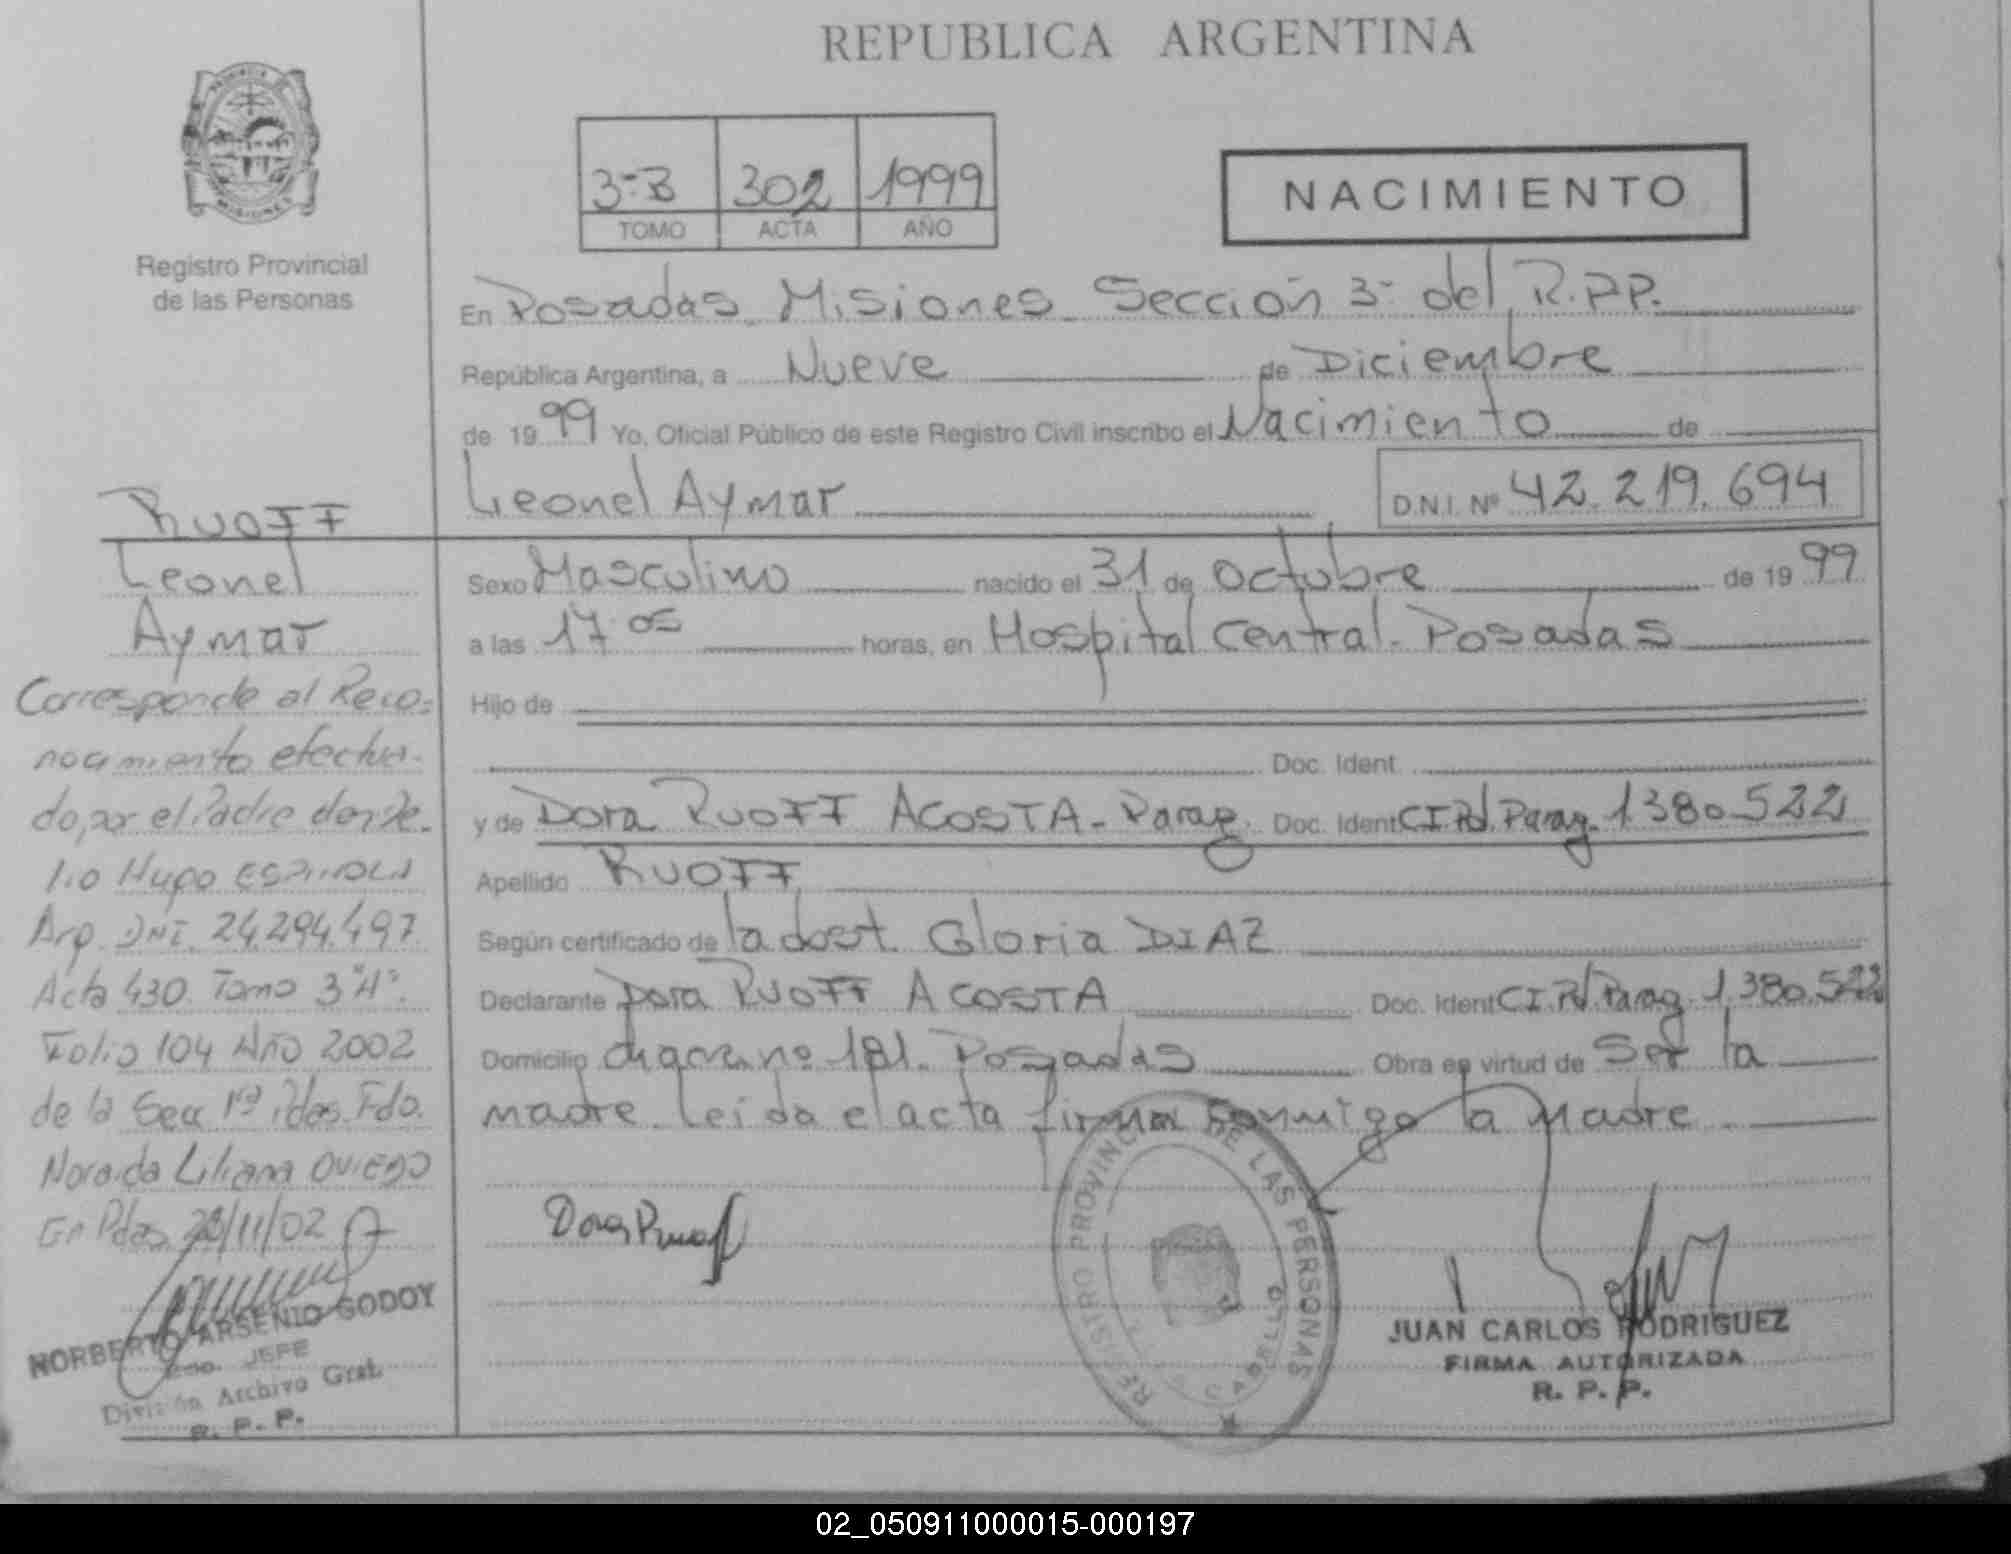 REPUBLICA ARGENTINA
PROVINCIA DE
MISIONES
Registro Provincial
de las Personas
3-B 302 1999
TOMO ACTA AÑO
NACIMIENTO
En Posadas Misiones Sección 3- del R.P.P.
República Argentina, a Nueve de Diciembre
de 1999 Yo, Oficial Público de este Registro Civil inscribo el Nacimiento de
Leonel Aymar D.N.I. Nº 42.219.694
Sexo Masculino nacido el 31 de Octubre de 1999
a las 17:05 horas, en Hospital Central - Posadas
Hijo de
Doc. Ident.
y de Dora RUOFF ACOSTA - Parag. Doc. Ident CI Pol. Parag. 1380522
Apellido RUOFF
Según certificado de la dost. Gloria DIAZ
Declarante Dora RUOFF ACOSTA Doc. Ident CI. Pol. Parag. 1.380.522
Domicilio chacra nº 181. Posadas Obra en virtud de Ser la
madre. Leida el acta firma conmigo la madre
Dora Ruoff
REGISTRO PROVINCIAL DE LAS PERSONAS
JUAN CARLOS RODRIGUEZ
FIRMA AUTORIZADA
R. P. P.
RUOFF
Leonel
Aymar
Corresponde al Reco-
nocimiento efectua-
do, por el Padre
Hugo ESPINOLA
Arg. DNI. 24.294.497
Acta 430. Tomo 3"A".
Folio 104 Año 2002
de la Secc 1ª Pdas. Fdo.
Noraida Liliana OVIEDO
En Pdas 28/11/02
NORBERTO ARSENIO GODOY
JEFE
División Archivo Gral.
R. P. P.
02_050911000015-000197